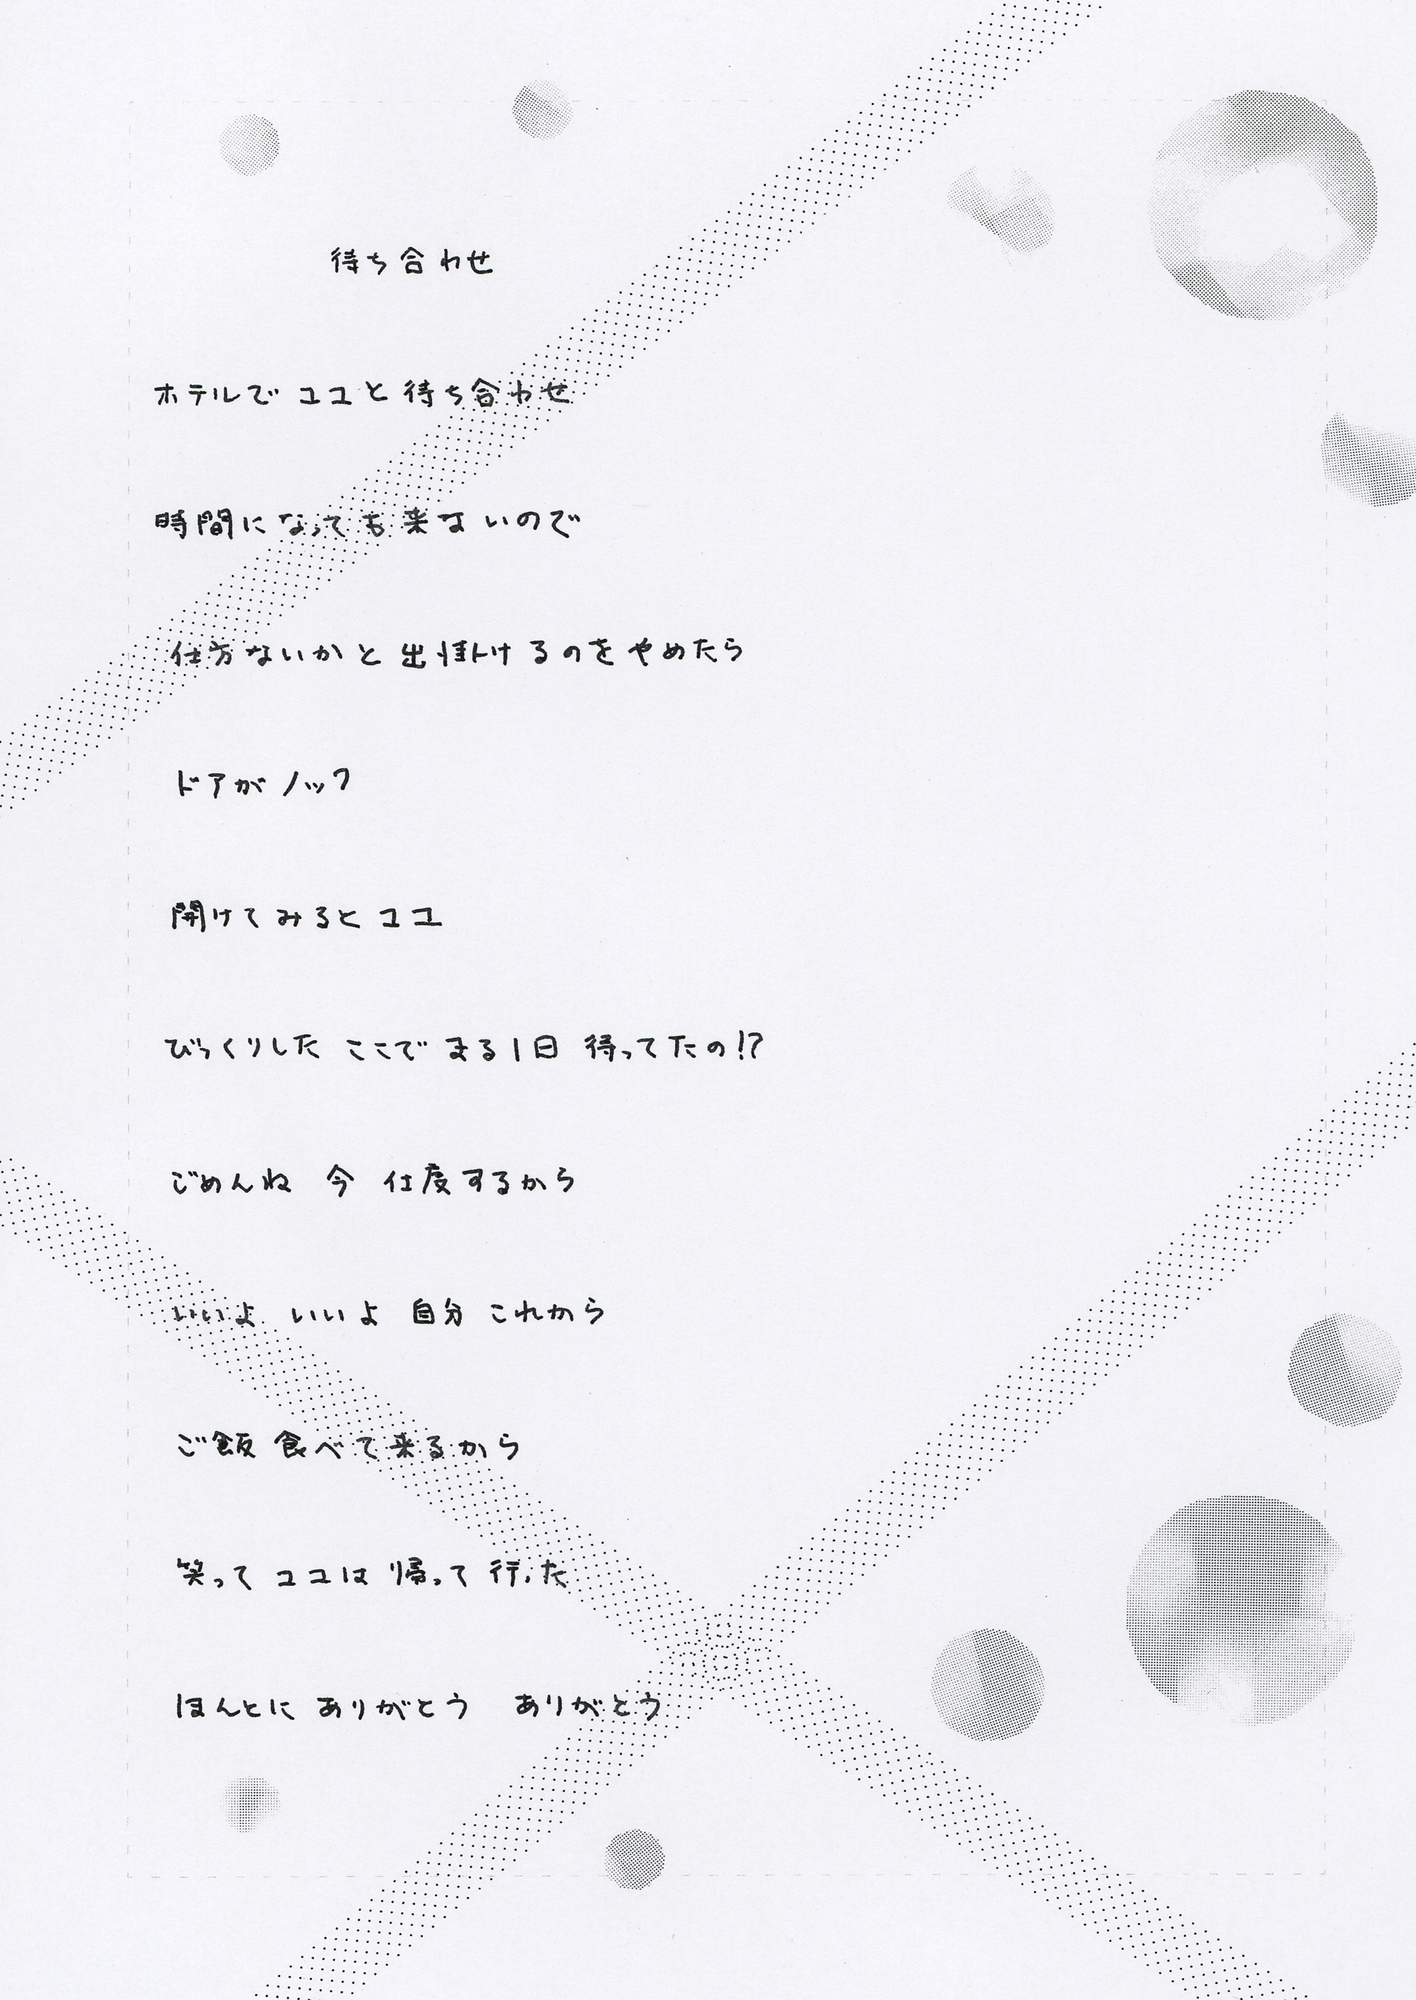 待ち合わせ
ホテルで ココと 待ち合わせ
時間になっても来ないので
仕方ないかと 出掛けるのをやめたら
ドアがノック
開けてみるとココ
びっくりした ここで まる1日 待ってたの!?
ごめんね 今 仕度するから
いいよ いいよ 自分 これから
ご飯 食べて来るから
笑って ココは 帰って 行った
ほんとに ありがとう ありがとう